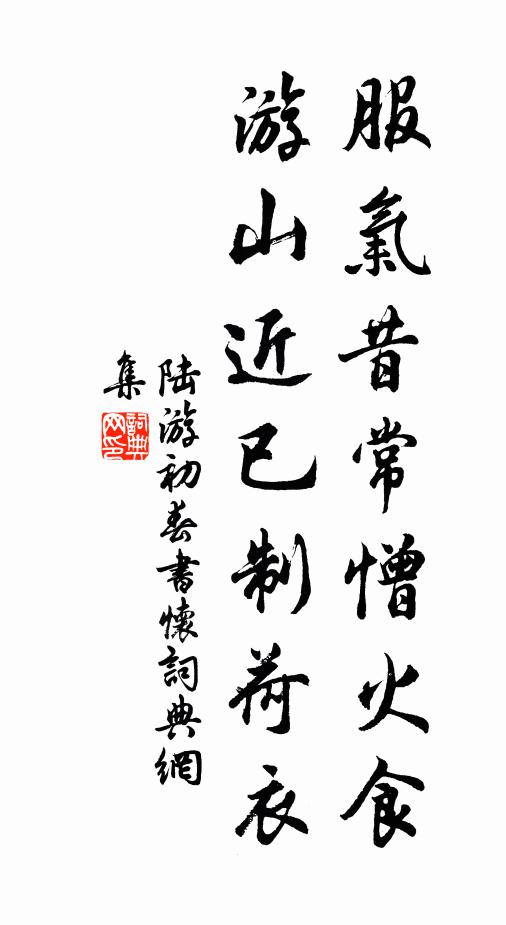 服氣昔常憎火食
游山近已制荷衣
陆游初春書懷詞典網
集
詞典
网印